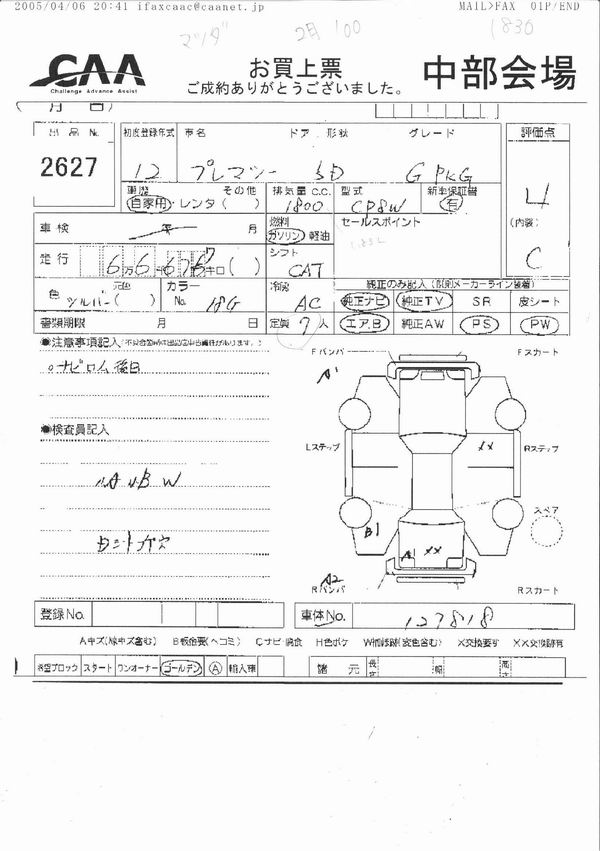 2005/04/06 20:41 ifaxcaac@caanet.jp MAIL>FAX 01P/END
マツダ 2月 100 1830
CAA
Challenge Advance Assist
お買上票
ご成約ありがとうございました。
中部会場
月 日)
出品 No. 初度登録年式 車名 ドア 形状 グレード 評価点
2627 12 プレマシー 5D G PKG 4
車歴 その他 排気量 C.C. 型式 新車保証書
自家用・レンタ( ) 1800 CP8W 有
(内装)
車検 年 月 燃料 セールスポイント
ガソリン 軽油
C
走行 6万6千676キロ( ) シフト
CAT
色 シルバー 元色( ) カラーNo. 18G 冷房 AC 純正のみ記入
純正ナビ 純正TV SR 皮シート
書類期限 月 日 定員 7人 エアB 純正AW PS PW
●注意事項記入
○ナビロム後日
●検査員記入
小A小BW
Fバンパ Fスカート
A1
Lステップ XX Rステップ
スペア
B1
A1 XX
A2
Rバンパ Rスカート
登録No. 車体No. 127818
Aキズ(線キズ含む) B板金要(ヘコミ) Cサビ・腐食 H色ボケ W補修跡(変色含む) X交換要す XX交換跡有
希望ブロック スタート ワンオーナー ゴールデン A 輸入車 諸元 長さ 幅 高さ